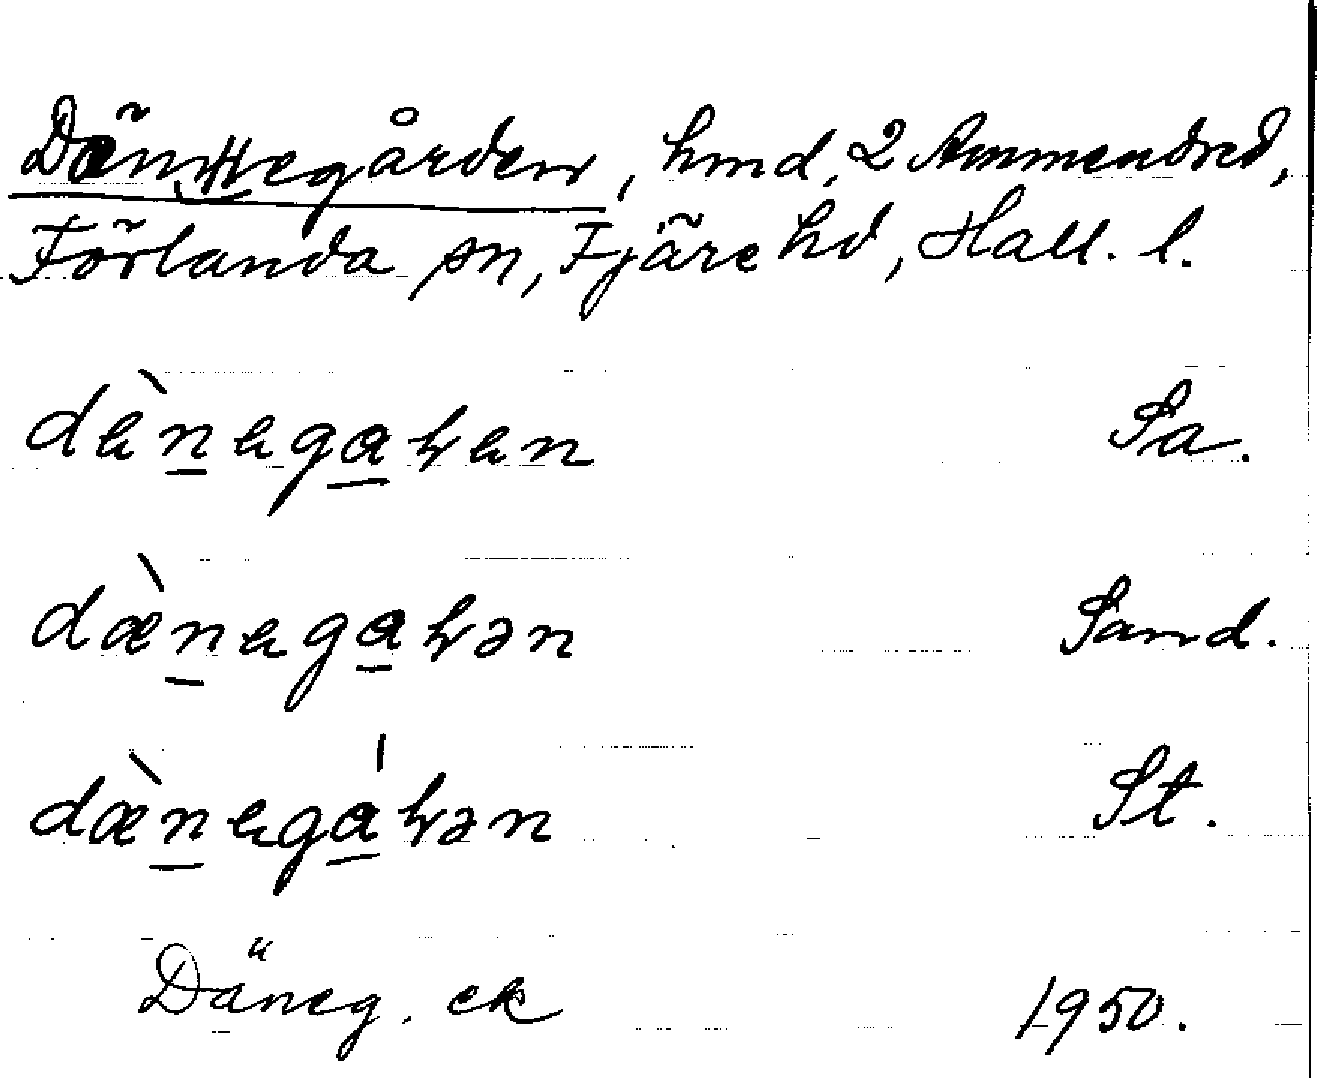 Dännegården, hmd. 2 Ammendred,
Förlanda sn, Fjäre hd, Hall. l.
dènegaren Sa.
dæ̀negarən Sand.
dæ̀negárən St.
Däneg. ek 1950.